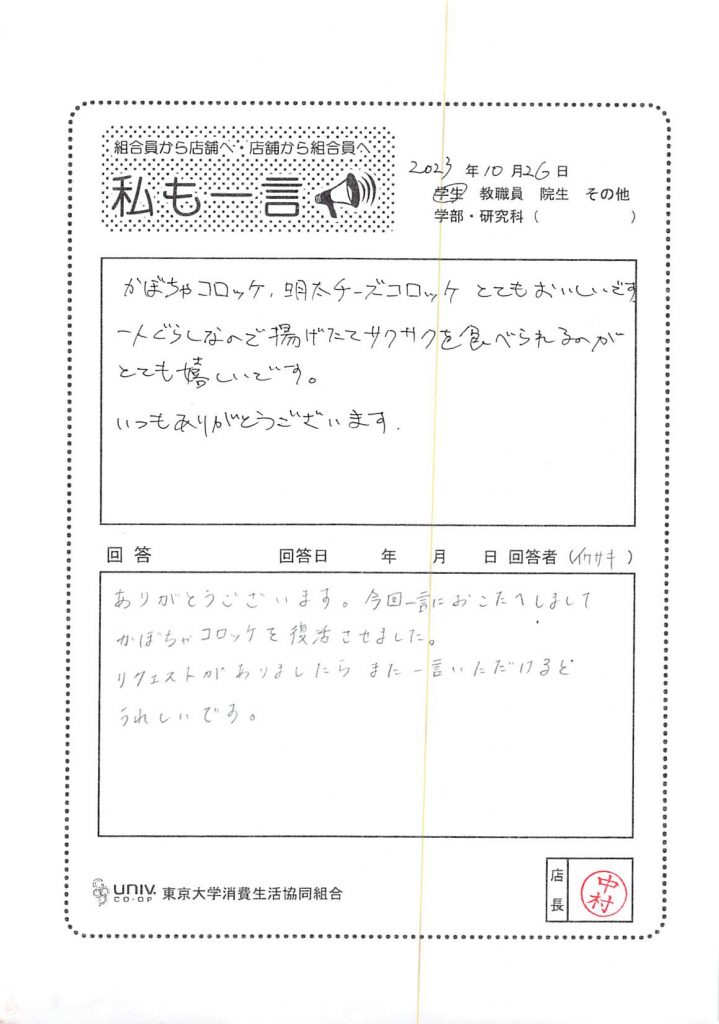 組合員から店舗へ・店舗から組合員へ
私も一言
2023年10月26日
学生 教職員 院生 その他
学部・研究科( )
かぼちゃコロッケ、明太チーズコロッケ とてもおいしいです
一人ぐらしなので揚げたてサクサクを食べられるのが
とても嬉しいです。
いつもありがとうございます.
回答 回答日 年 月 日 回答者(イワサキ)
ありがとうございます。今回一言におこたへしまして
かぼちゃコロッケを復活させました。
リクエストがありましたら また一言いただけると
うれしいです。
UNIV. CO-OP 東京大学消費生活協同組合
店長 中村